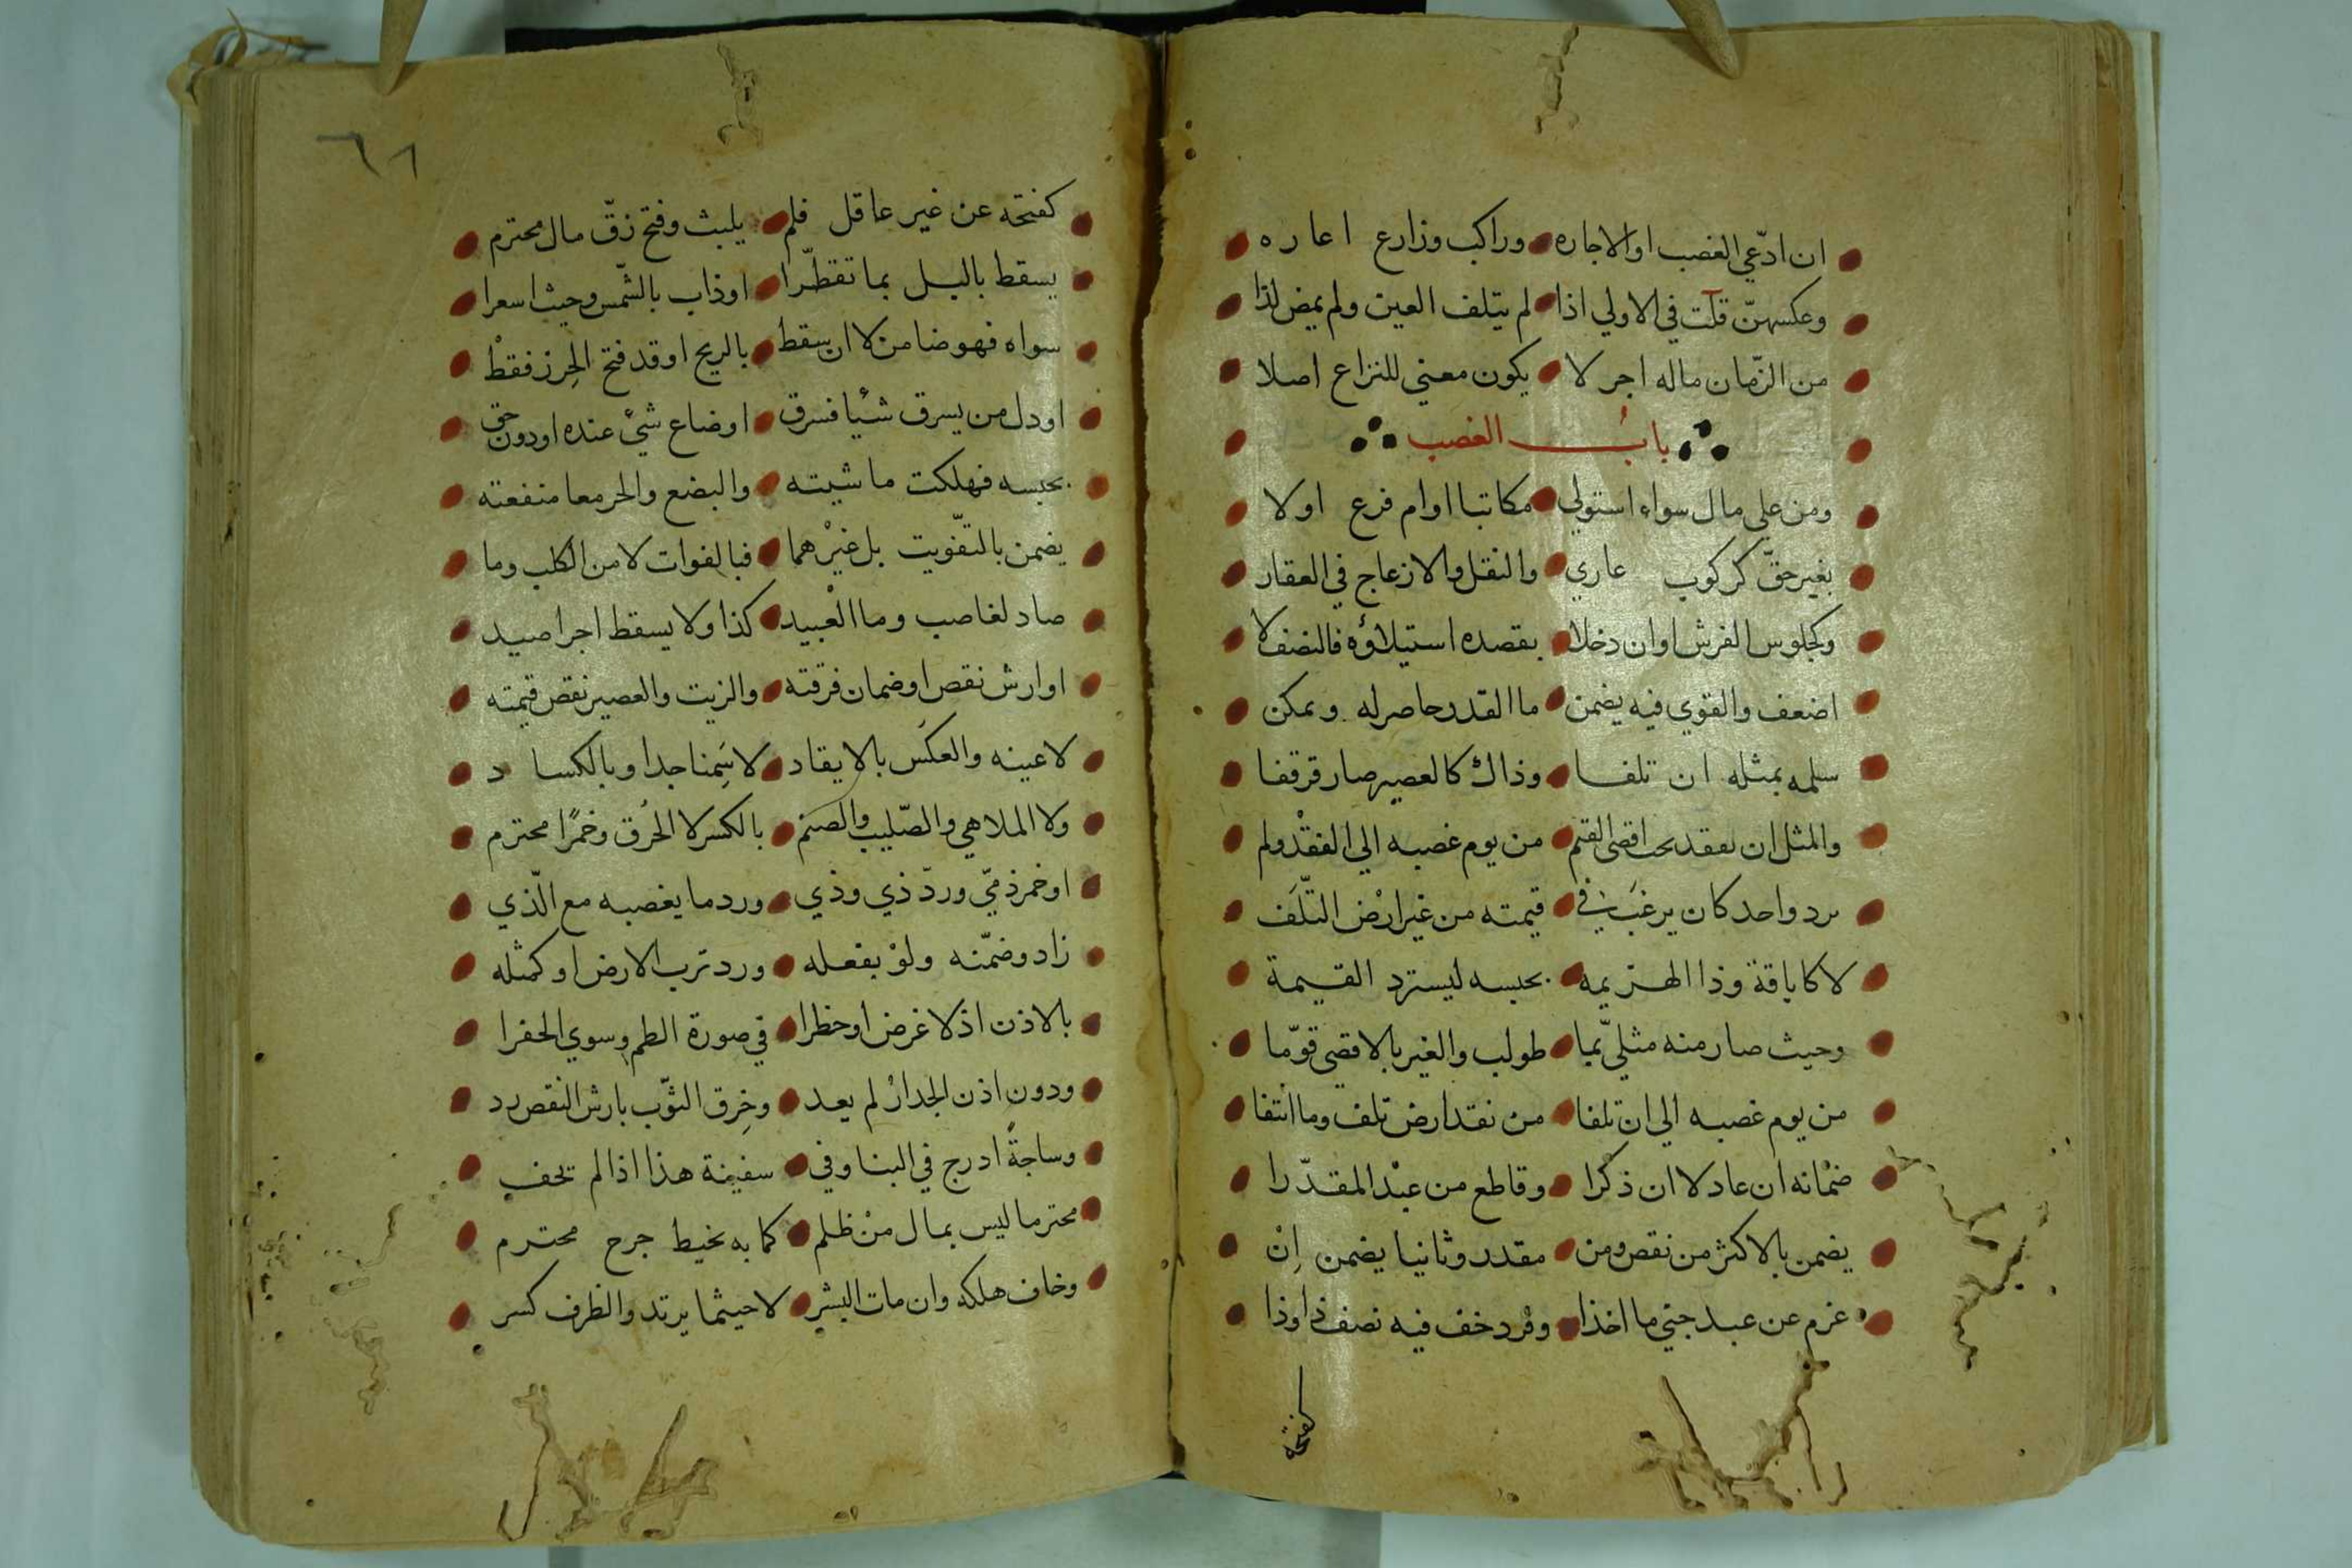 ان ادّعي الغصب او الاجاره وراكب وزارع اعاره
وعكسهنّ قلت في الاولي اذا لم يتلف العين ولم يمض لذا
من الزّمان ماله اجر لا يكون معني للنزاع اصلا
باب الغصب
ومن علي مال سواء استولي مكاتبا او ام فرع اولا
بغير حقّ كركوب عاري والنقل والازعاج في العقار
وكجلوس الفرش او ان دخلا بقصده استيلاؤه فالنصف لا
اضعف والقوي فيه يضمن ما القدر حاصر له ويمكن
سلمه بمثله ان تلفا وذاك كالعصير صار قرقفا
والمثل ان يفقد بحب اقصى القيم من يوم غصبه الي الفقْد ولم
يرد واحد كان يرغب في قيمته من غير ارْض التّلَف
لا كاباقة وذا الهزيمه بحبسه ليسترد القيمة
وحيث صار منه مثلي بما طولب والغير بالاقصي قوّما
من يوم غصبه الي ان تلفا من نقد ارض تلف وما انتفا
ضمانه ان عاد لا ان ذكرا وقاطع من عبْد المقدّرا
يضمن بالاكثر من نقص ومن مقدر وثانيا يضمن اِنْ
غرم عن عبد جني ما اخذا وفرد خف فيه نصف ذا وذا
كفتحه
٦١
كفتحه عن غير عاقل فلم يلبث وفتح زقّ مال محترم
يسقط بالبل بما تقطّرا او ذاب بالشّمس وحيث اسعرا
سواه فهو ضامن لا ان يسقط بالريح او قد فتح الحِرز فقطْ
او دل من يسرق شئيا فسرق او ضاع شئ عنده او دون حق
بحبسه فهلكت ماشيته والبضع والحر معا منفعته
يضمن بالتفّويت بل غيْرهما فبالفوات لا من الكلب وما
صاد لغاصب وما العْبيد كذا ولا يسقط اجرا صيد
او ارش نقص او ضمان فرقته والزيت والعصير نقص قيمته
لا عينه والعكس بالايقاد لا سَمِنا جدا وبالكساد
ولا الملاهي والصّليب والصنم بالكسر لا الحُرق وخمرًا محترم
او خمر ذميّ وردّ ذي وذي ورد ما يغصبه مع الّذي
زاد وضمّنه ولوْ بفعله ورد ترب الارض او كمثله
بالاذن اذ لا غرض او حظرا في صورة الطم وسوي الحفرا
ودون اذن الجدار لم يعد وخِرق الثوّب بارش النقص رد
وساجةً ادرج في البنا وفي سفينة هذا اذا لم تخف
محترما ليس بمال منْ ظلم كما به نخيط جرح محترم
وخاف هلكه وان مات البشر لا حيثما يرتد والظرف كسر